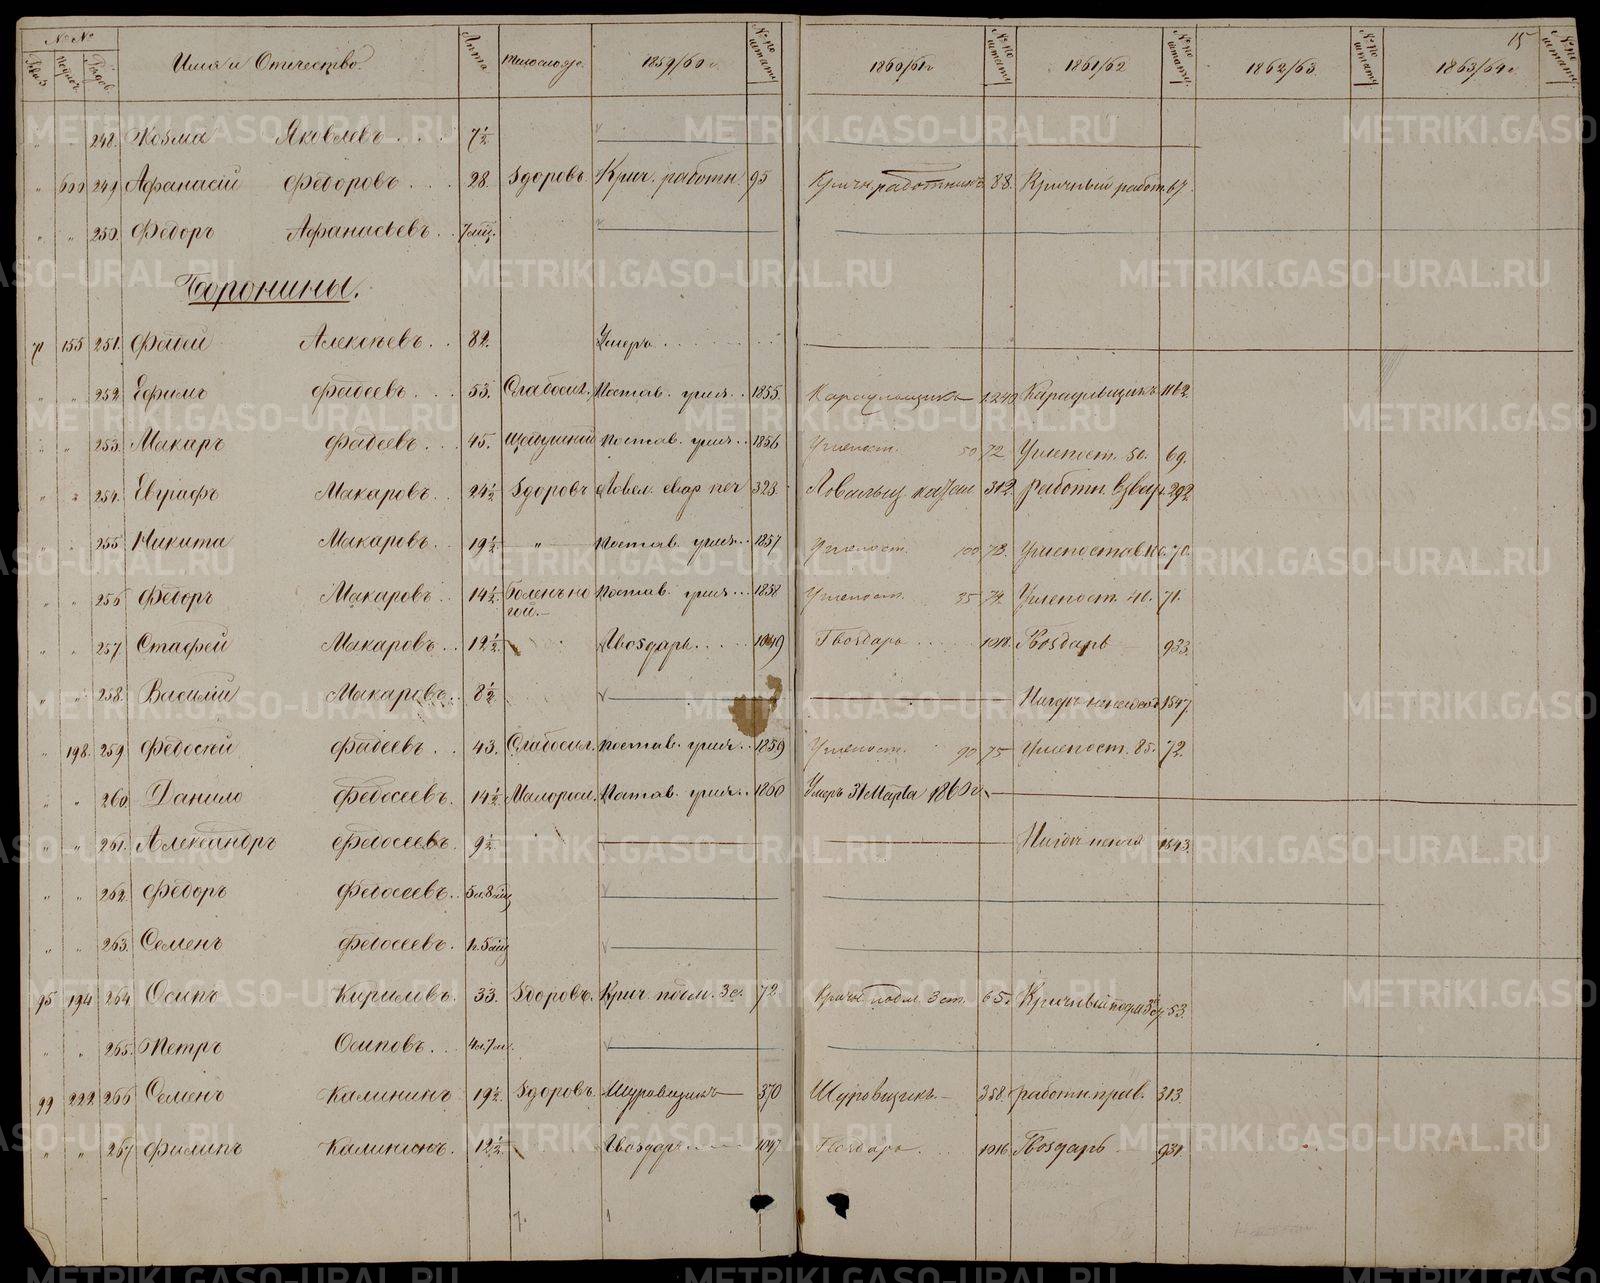 № №
Имя и Отчество.
Лѣта
Телослож.
1859/60 г.
№ по штату
1860/61 г
№ по штату
1861/62
№ по штату
1862/63.
№ по штату
1863/64 г
№ по штату
15
Подвор.
Рядов.
" " 248. Козма Яковлевъ . . . . 7½
" 600 249. Афанасій Федоровъ . . . 28. Здоровъ. Крич. работн. 95 Кричн. работникъ 88. Кричный работ. 67.
" " 250. Федоръ Афанасьевъ . . 7 мѣц.
Боронины.
71 155 251. Фадей Алексѣевъ . . 82. Умеръ . . .
" " 252. Ефимъ Фадеевъ . . . 53. Слабосил. Постав. угля . . 1855. Караульщикъ 1240 Караульщикъ 1162.
" " 253. Макаръ Фадеевъ . . . 45. Тщедушный Постав. угля . . 1856 Углепост. 50 72 Углепост. 50. 69.
" " 254. Евграфъ Макаровъ . . 24½ Здоровъ 323. 312. работн. 292
" " 255 Никита Макаровъ . . 19½ " Постав. угля . . 1857 Углепост. 100 73. Углепостав. 100. 70.
" " 256 Федоръ Макаровъ . . 14½ Боленъ но
гой. Постав. угля . . . 1858 Углепост. 35 74. Углепост. 40. 71.
" " 257 Стафей Макаровъ . . 12½ Гвоздарь . . . . 1049 Гвоздарь . . . . 1018. Гвоздарь 933.
" " 258. Василій Макаровъ . . 8½ 1547.
" 198. 259 Федосѣй Фадеевъ . . 43. Слабосил. Постав. угля . . 1859 Углепост. 90 75 Углепост. 85. 72.
" " 260 Данило Федосеевъ . 14½ Малоросл. Постав. угля . . 1860 Умеръ 31 Марта 1860 г.
" " 261. Александръ Федосеевъ . 9½ 1543.
" " 262. Федоръ Федосеевъ . . 5 л. 8 мѣц
" " 263. Семенъ Федосеевъ . 1 г. 5 мѣц
95 194 264 Осипъ Кириловъ . 33. Здоровъ. Крич. подм. 3 с. 72. Кричн. подм. 3 ст. 65. Кричный подм. 3 ст 53.
" " 265. Петръ Осиповъ . . . 4 л. 7 м.
99 222 266 Семенъ Калининъ 19½ Здоровъ. Шуровщикъ 370 Шуровщикъ 358. работн. прав. 313.
" " 267 Филипъ Калининъ . 12½ Гвоздарь . . . 1047. Гвоздарь . . . 1016. Гвоздарь 931.
METRIKI.GASO-URAL.RU